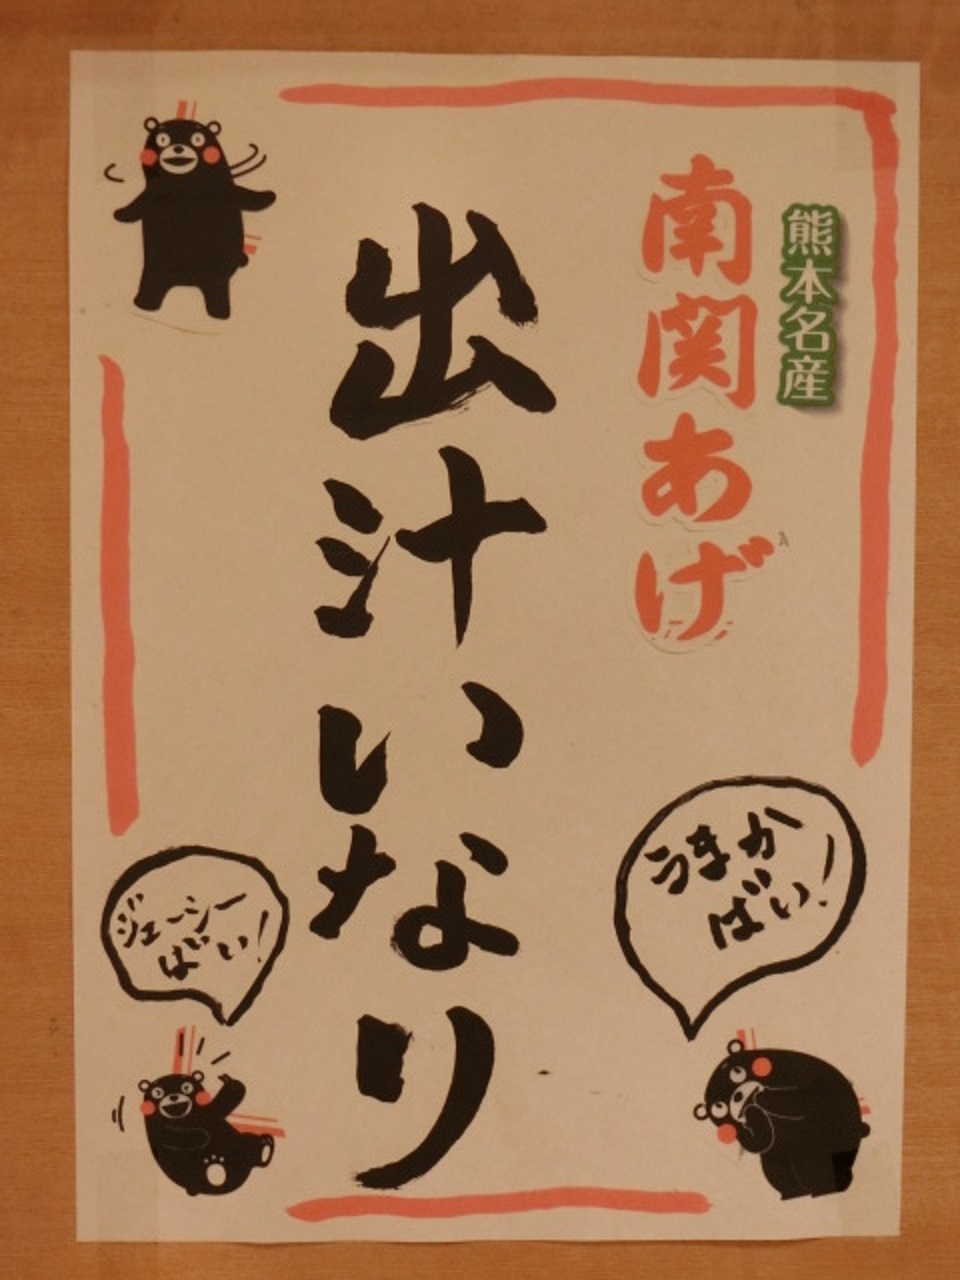 熊本名産
南関あげ
出汁いなり
うまか
ばい!
ジューシー
ばい!